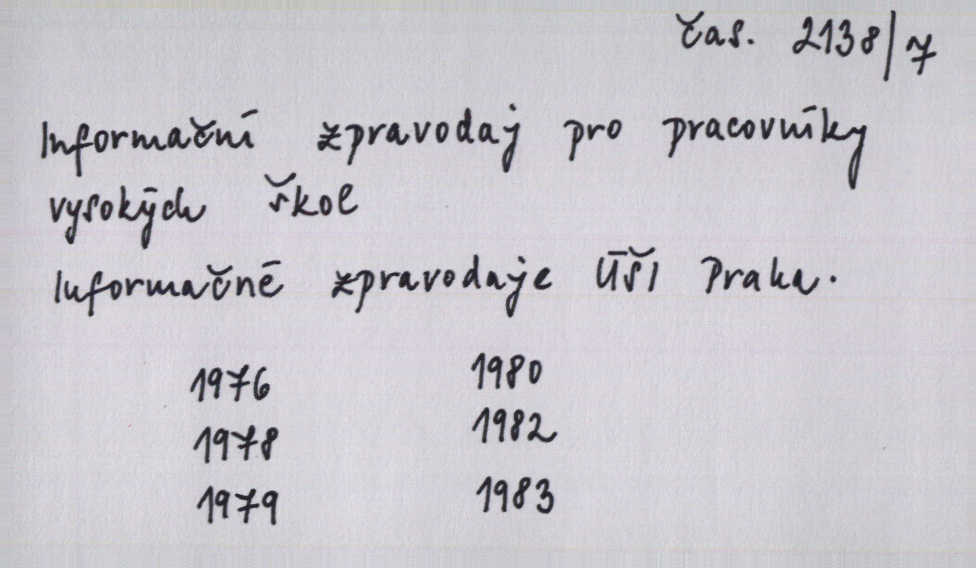 čas. 2138/7
Informační zpravodaj pro pracovníky
vysokých škol
Informačné zpravodaje ÚŠI Praha.
1976 1980
1978 1982
1979 1983